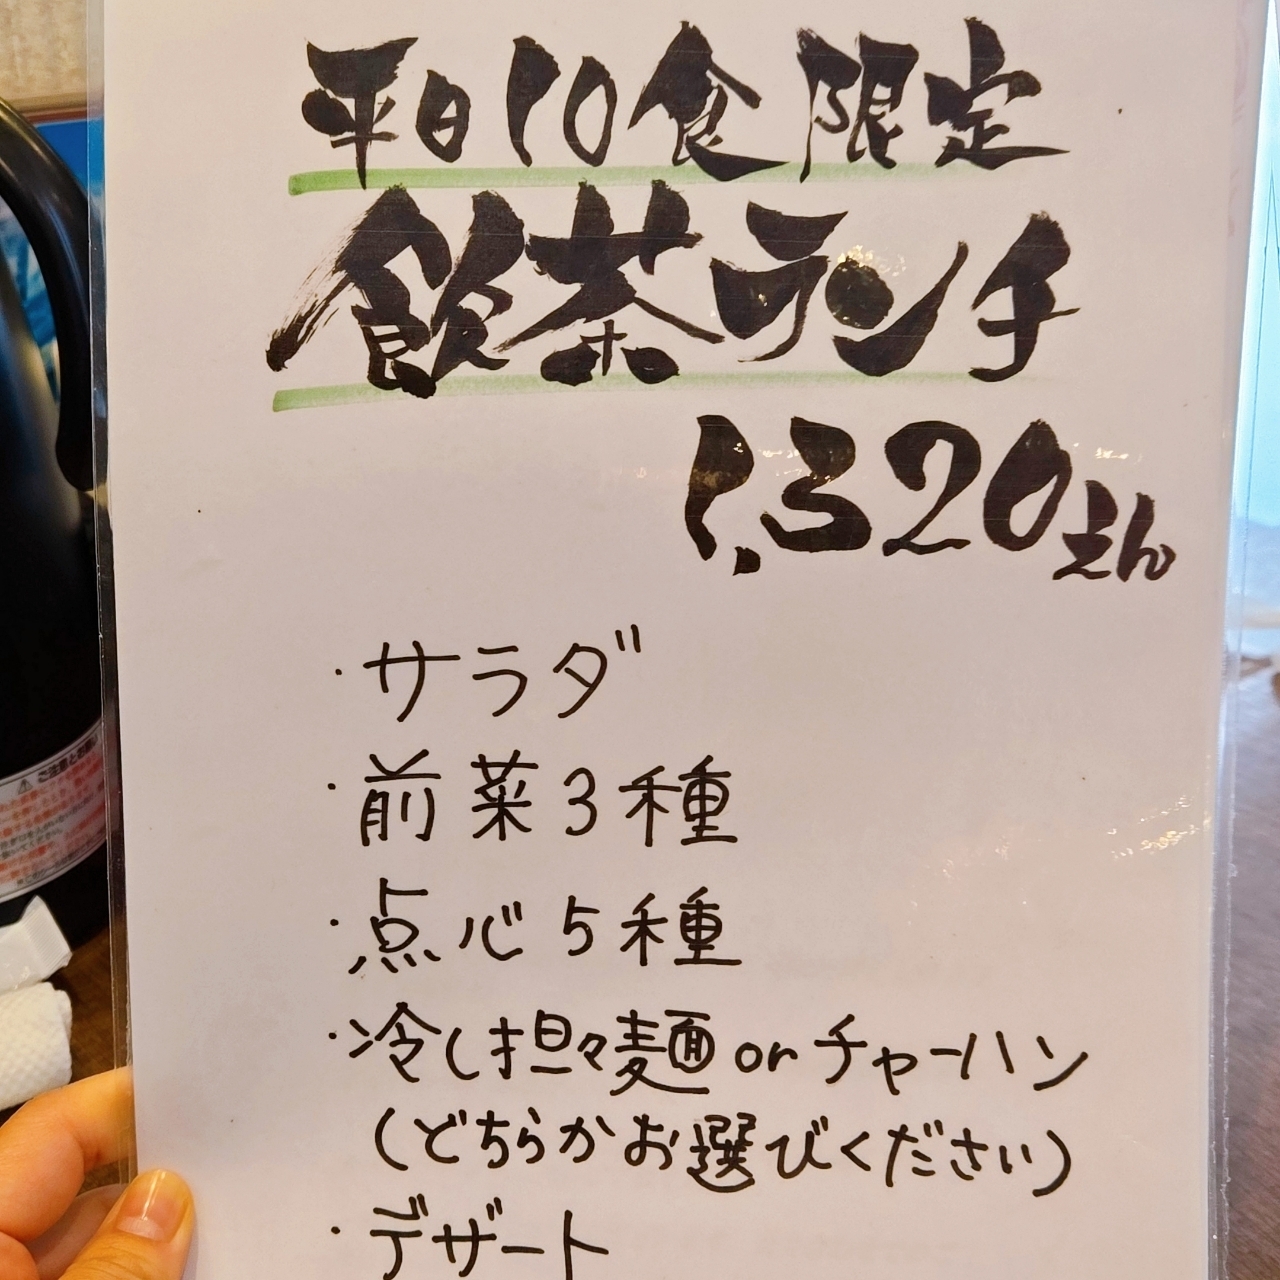 平日10食限定
飲茶ランチ
1,320えん
・サラダ
・前菜3種
・点心5種
・冷し担々麺 or チャーハン
（どちらかお選びください）
・デザート
ご注意とお願い